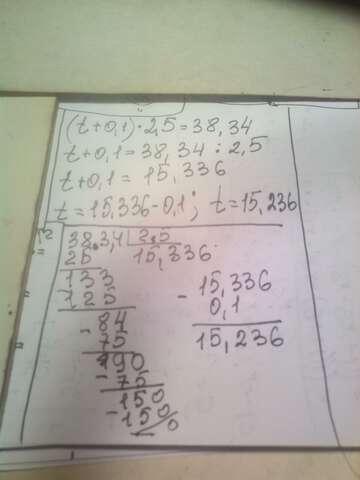 (t+0,1)·2,5=38,34
t+0,1=38,34:2,5
t+0,1=15,336
t=15,336-0,1; t=15,236
38,3,4 2,5
25 15,336
133
125
- 84
75
90
- 75
150
- 150
15,336
- 0,1
15,236